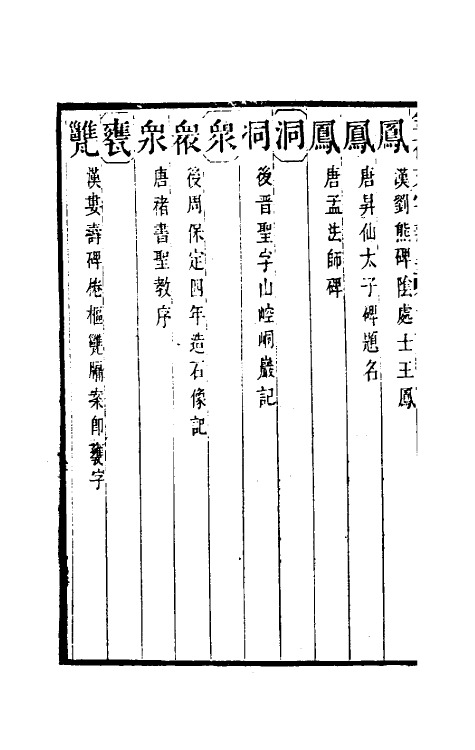 鳳 漢劉熊碑陰處士王鳳
鳳 唐昇仙太子碑題名
鳳 唐孟法師碑
洞
洞 後晉聖字山崆峒巖記
衆
衆 後周保定四年造石像記
衆 唐褚書聖教序
甕
甕 漢婁壽碑棬樞甕牖案卽甕字